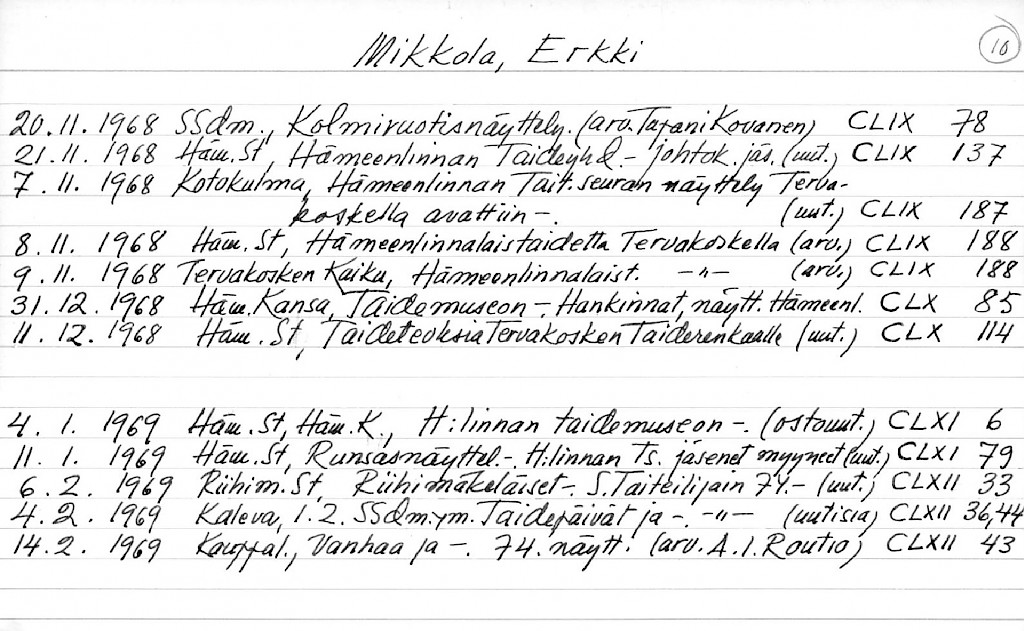 Mikkola, Erkki
10
20.11.1968 SSdm., Kolmivuotisnäyttely. (arv. Tapani Kovanen) CLIX 78
21.11.1968 Häm.St, Hämeenlinnan Taideyhd.- johtok. jäs. (uut.) CLIX 137
7.11.1968 Kotokulma, Hämeenlinnan Tait.seuran näyttely Terva-
koskella avattiin -. (uut.) CLIX 187
8.11.1968 Häm.St, Hämeenlinnalaistaidetta Tervakoskella (arv.) CLIX 188
9.11.1968 Tervakosken Kaiku, Hämeenlinnalaist. -"- (arv.) CLIX 188
31.12.1968 Häm.Kansa, Taidemuseon -. Hankinnat, näytt. Hämeenl. CLX 85
11.12.1968 Häm.St, Taideteoksia Tervakosken Taiderenkaalle (uut.) CLX 114
4.1.1969 Häm.St, Häm.K., H:linnan taidemuseon -. (ostouut.) CLXI 6
11.1.1969 Häm.St, Runsasnäyttel.-. H:linnan Ts. jäsenet myyneet (uut.) CLXI 79
6.2.1969 Riihim.St, Riihimäkeläiset -. S.Taiteilijain 74.- (uut.) CLXII 33
4.2.1969 Kaleva, 1.2. SSdm:ym. Taidepäivät ja -. -"- (uutisia) CLXII 36,44
14.2.1969 Kauppal., Vanhaa ja -. 74. näytt. (arv. A.I. Routio) CLXII 43